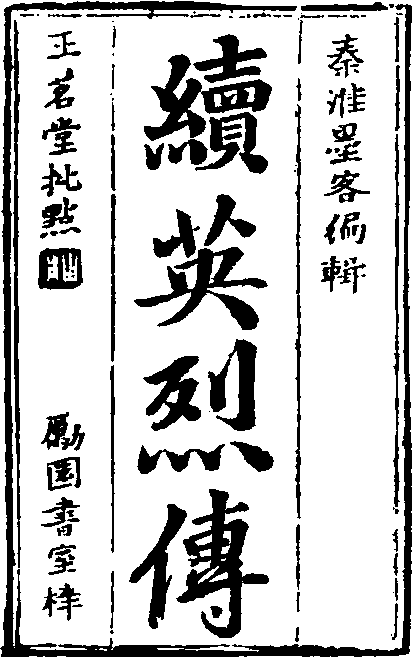 秦淮墨客編輯
續英烈傳
玉茗堂批點
勵園書室梓